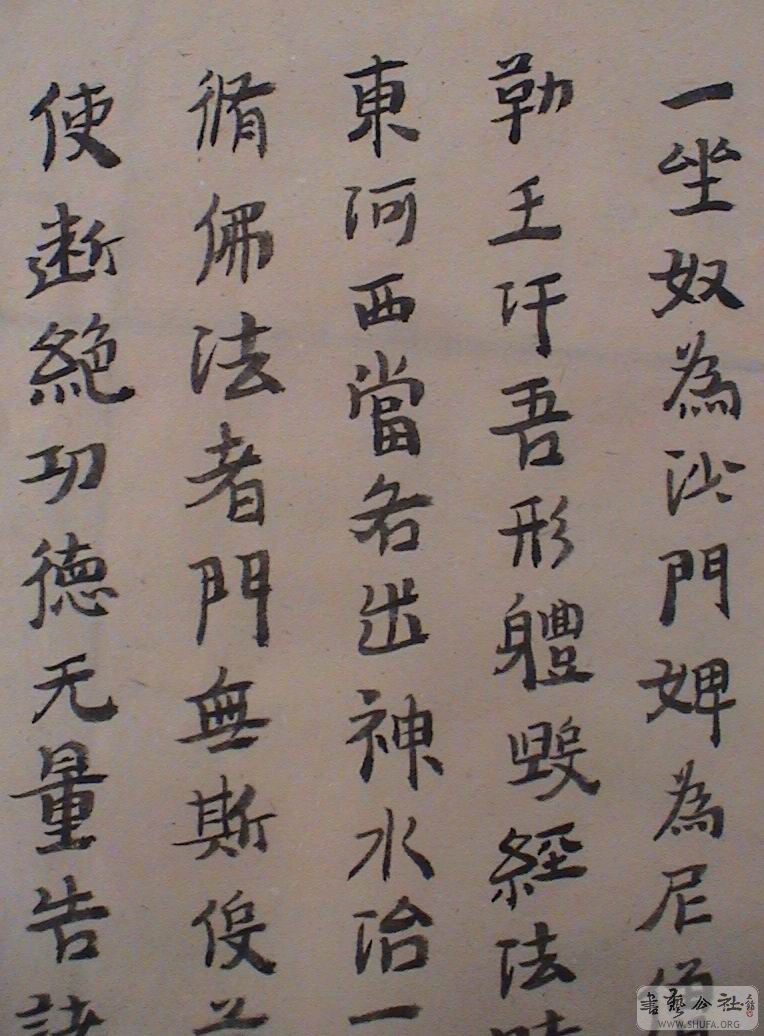 一坐奴為沙門婢為尼
勒王汙吾形軆毀經法
東河西當名出神水治一
脩佛法者門無斯
使断絶功德无量告諸
書藝公社
WWW.SHUFA.ORG